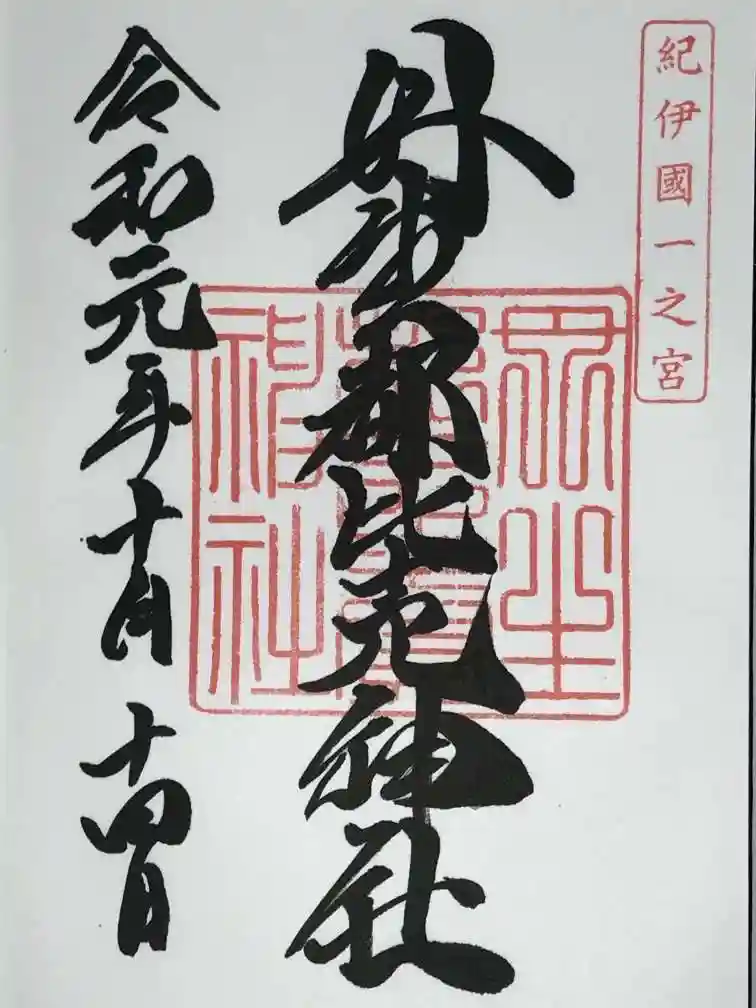 紀伊國一之宮
丹生都比売神社
丹生
都比賣
神社
令和元年十月十四日